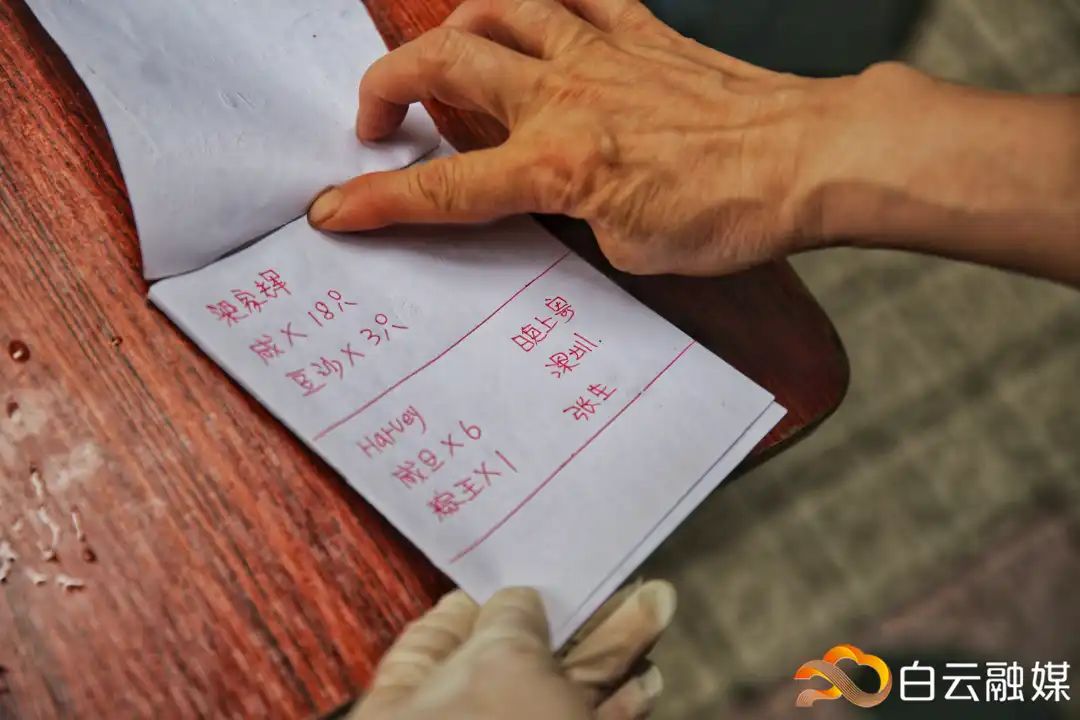 梁家辉
咸×18只
豆沙×3只
Harvey
咸旦×6
粽王×1
深圳.
张生
白云融媒